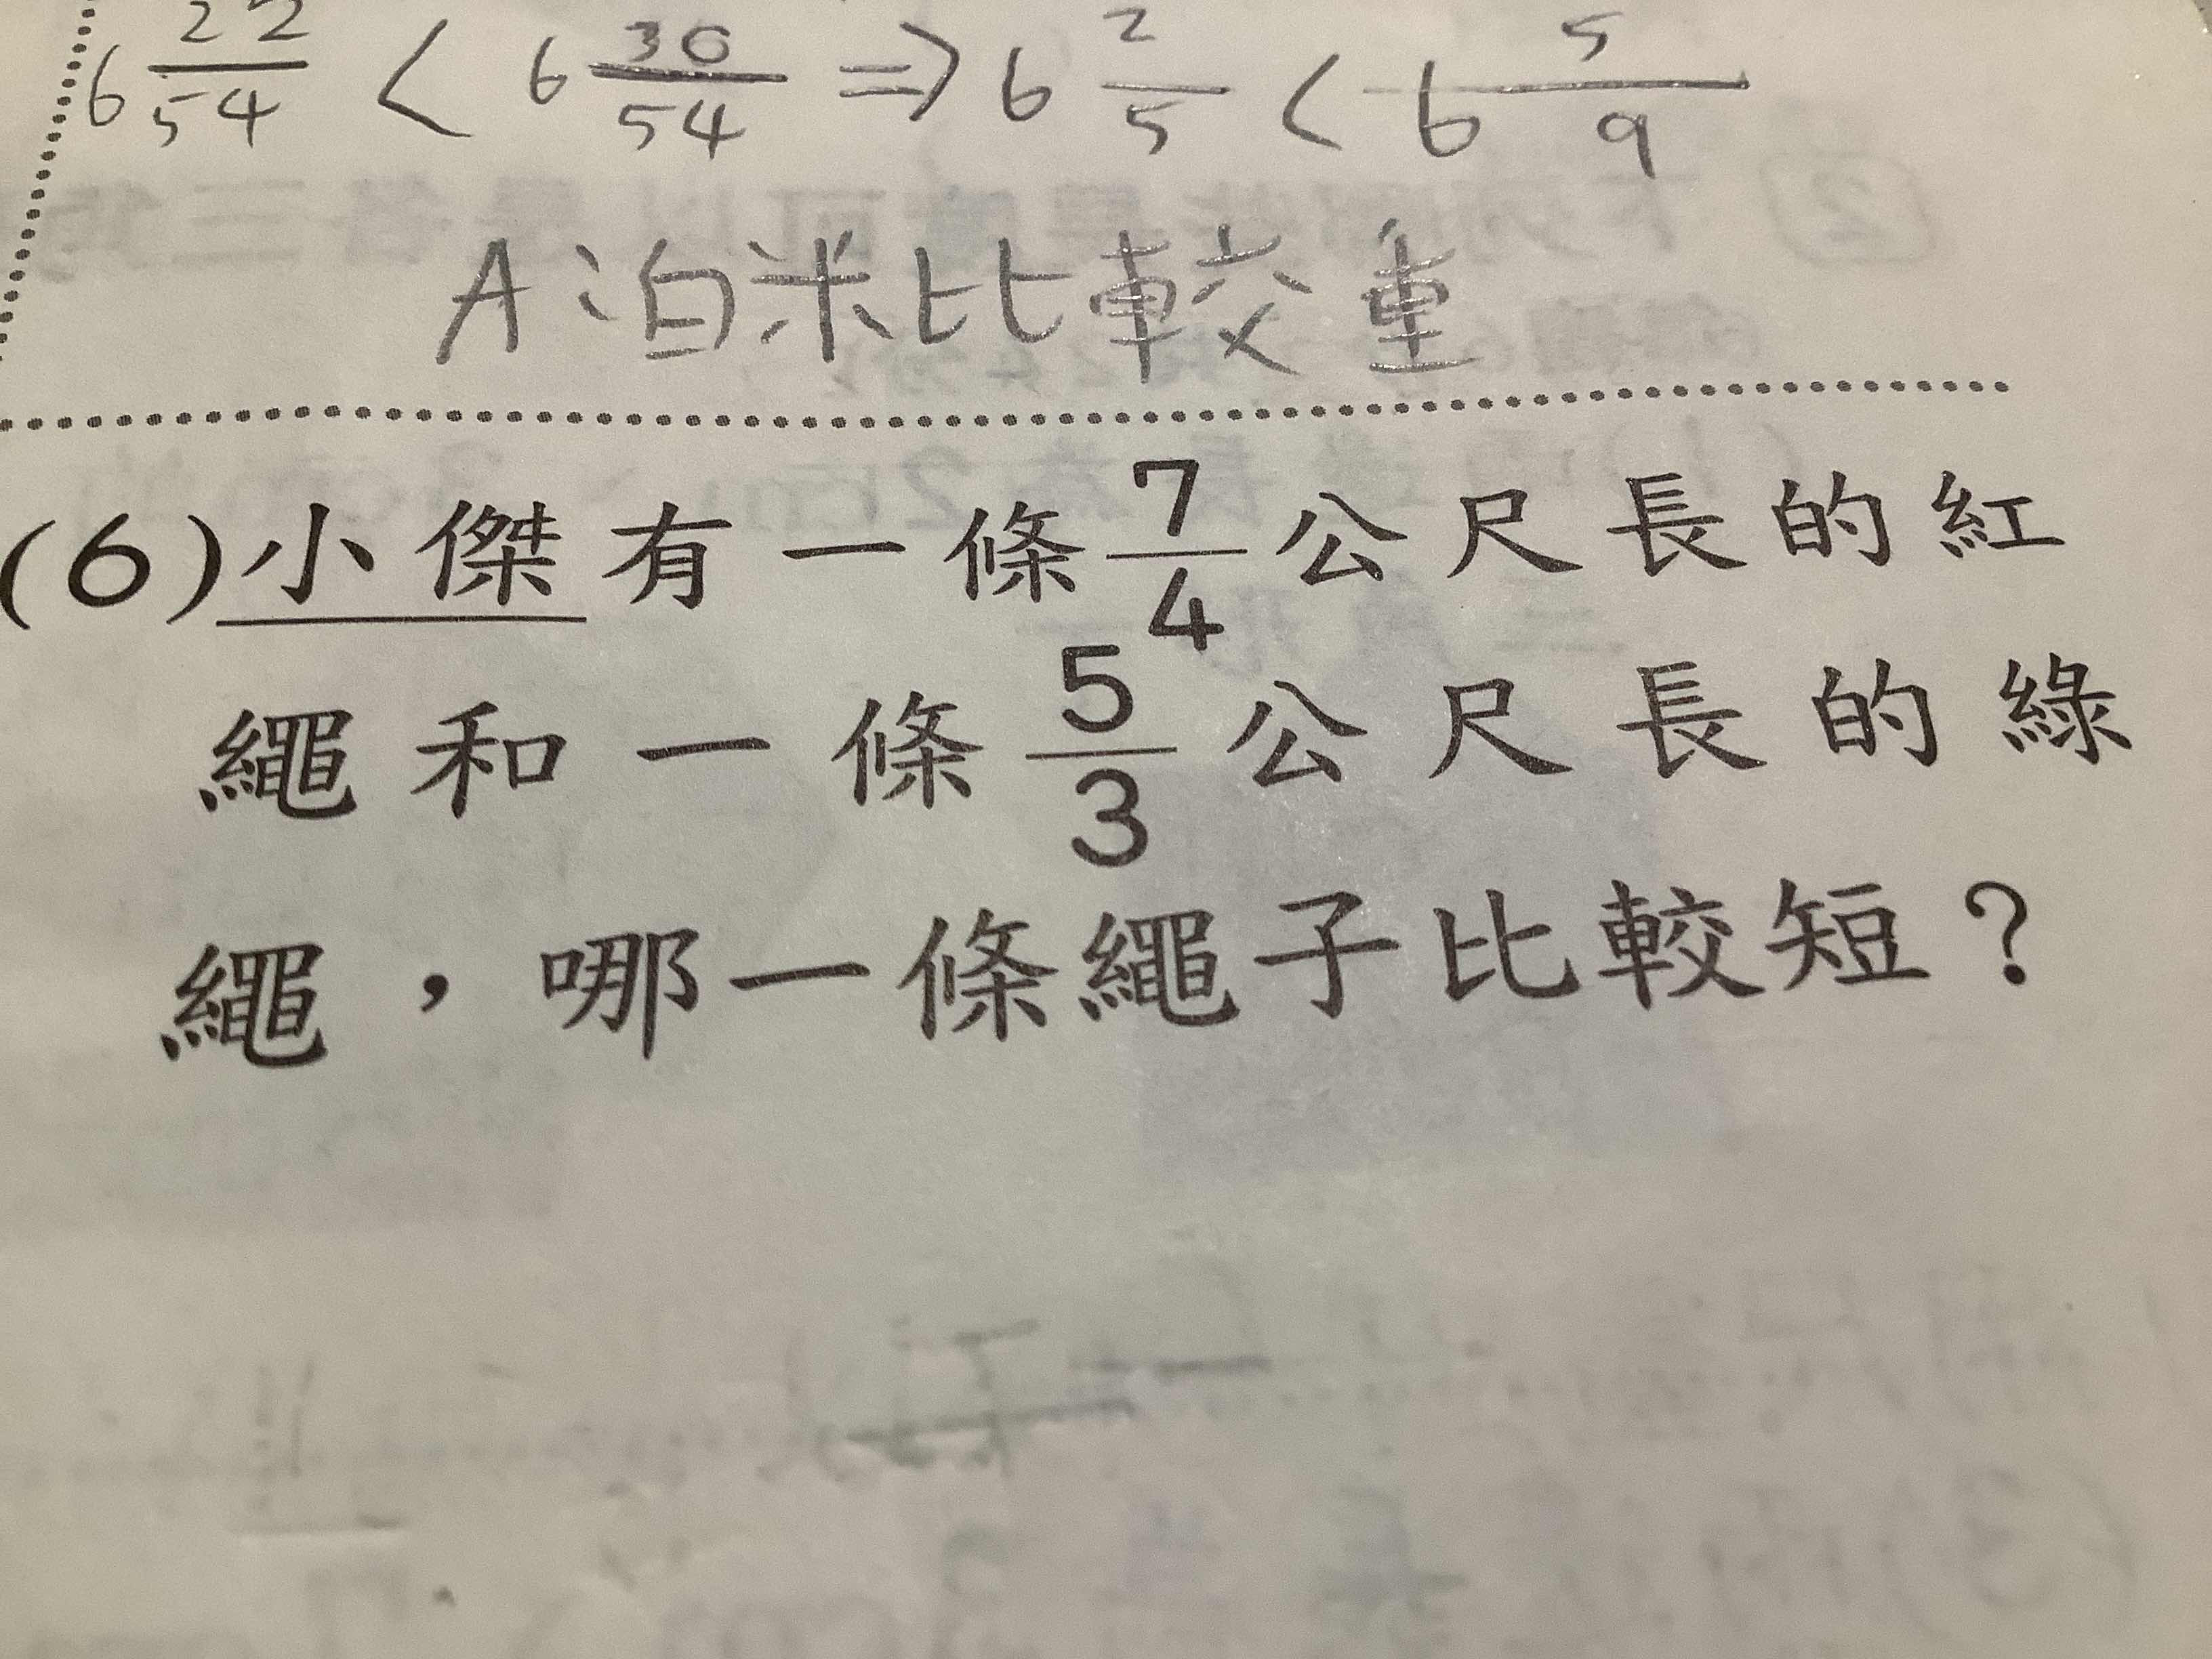 6 22/54 < 6 30/54 ⇒ 6 2/5 < 6 5/9
A:泊米比較重
(6)小傑有一條7/4公尺長的紅
繩和一條5/3公尺長的綠
繩，哪一條繩子比較短？